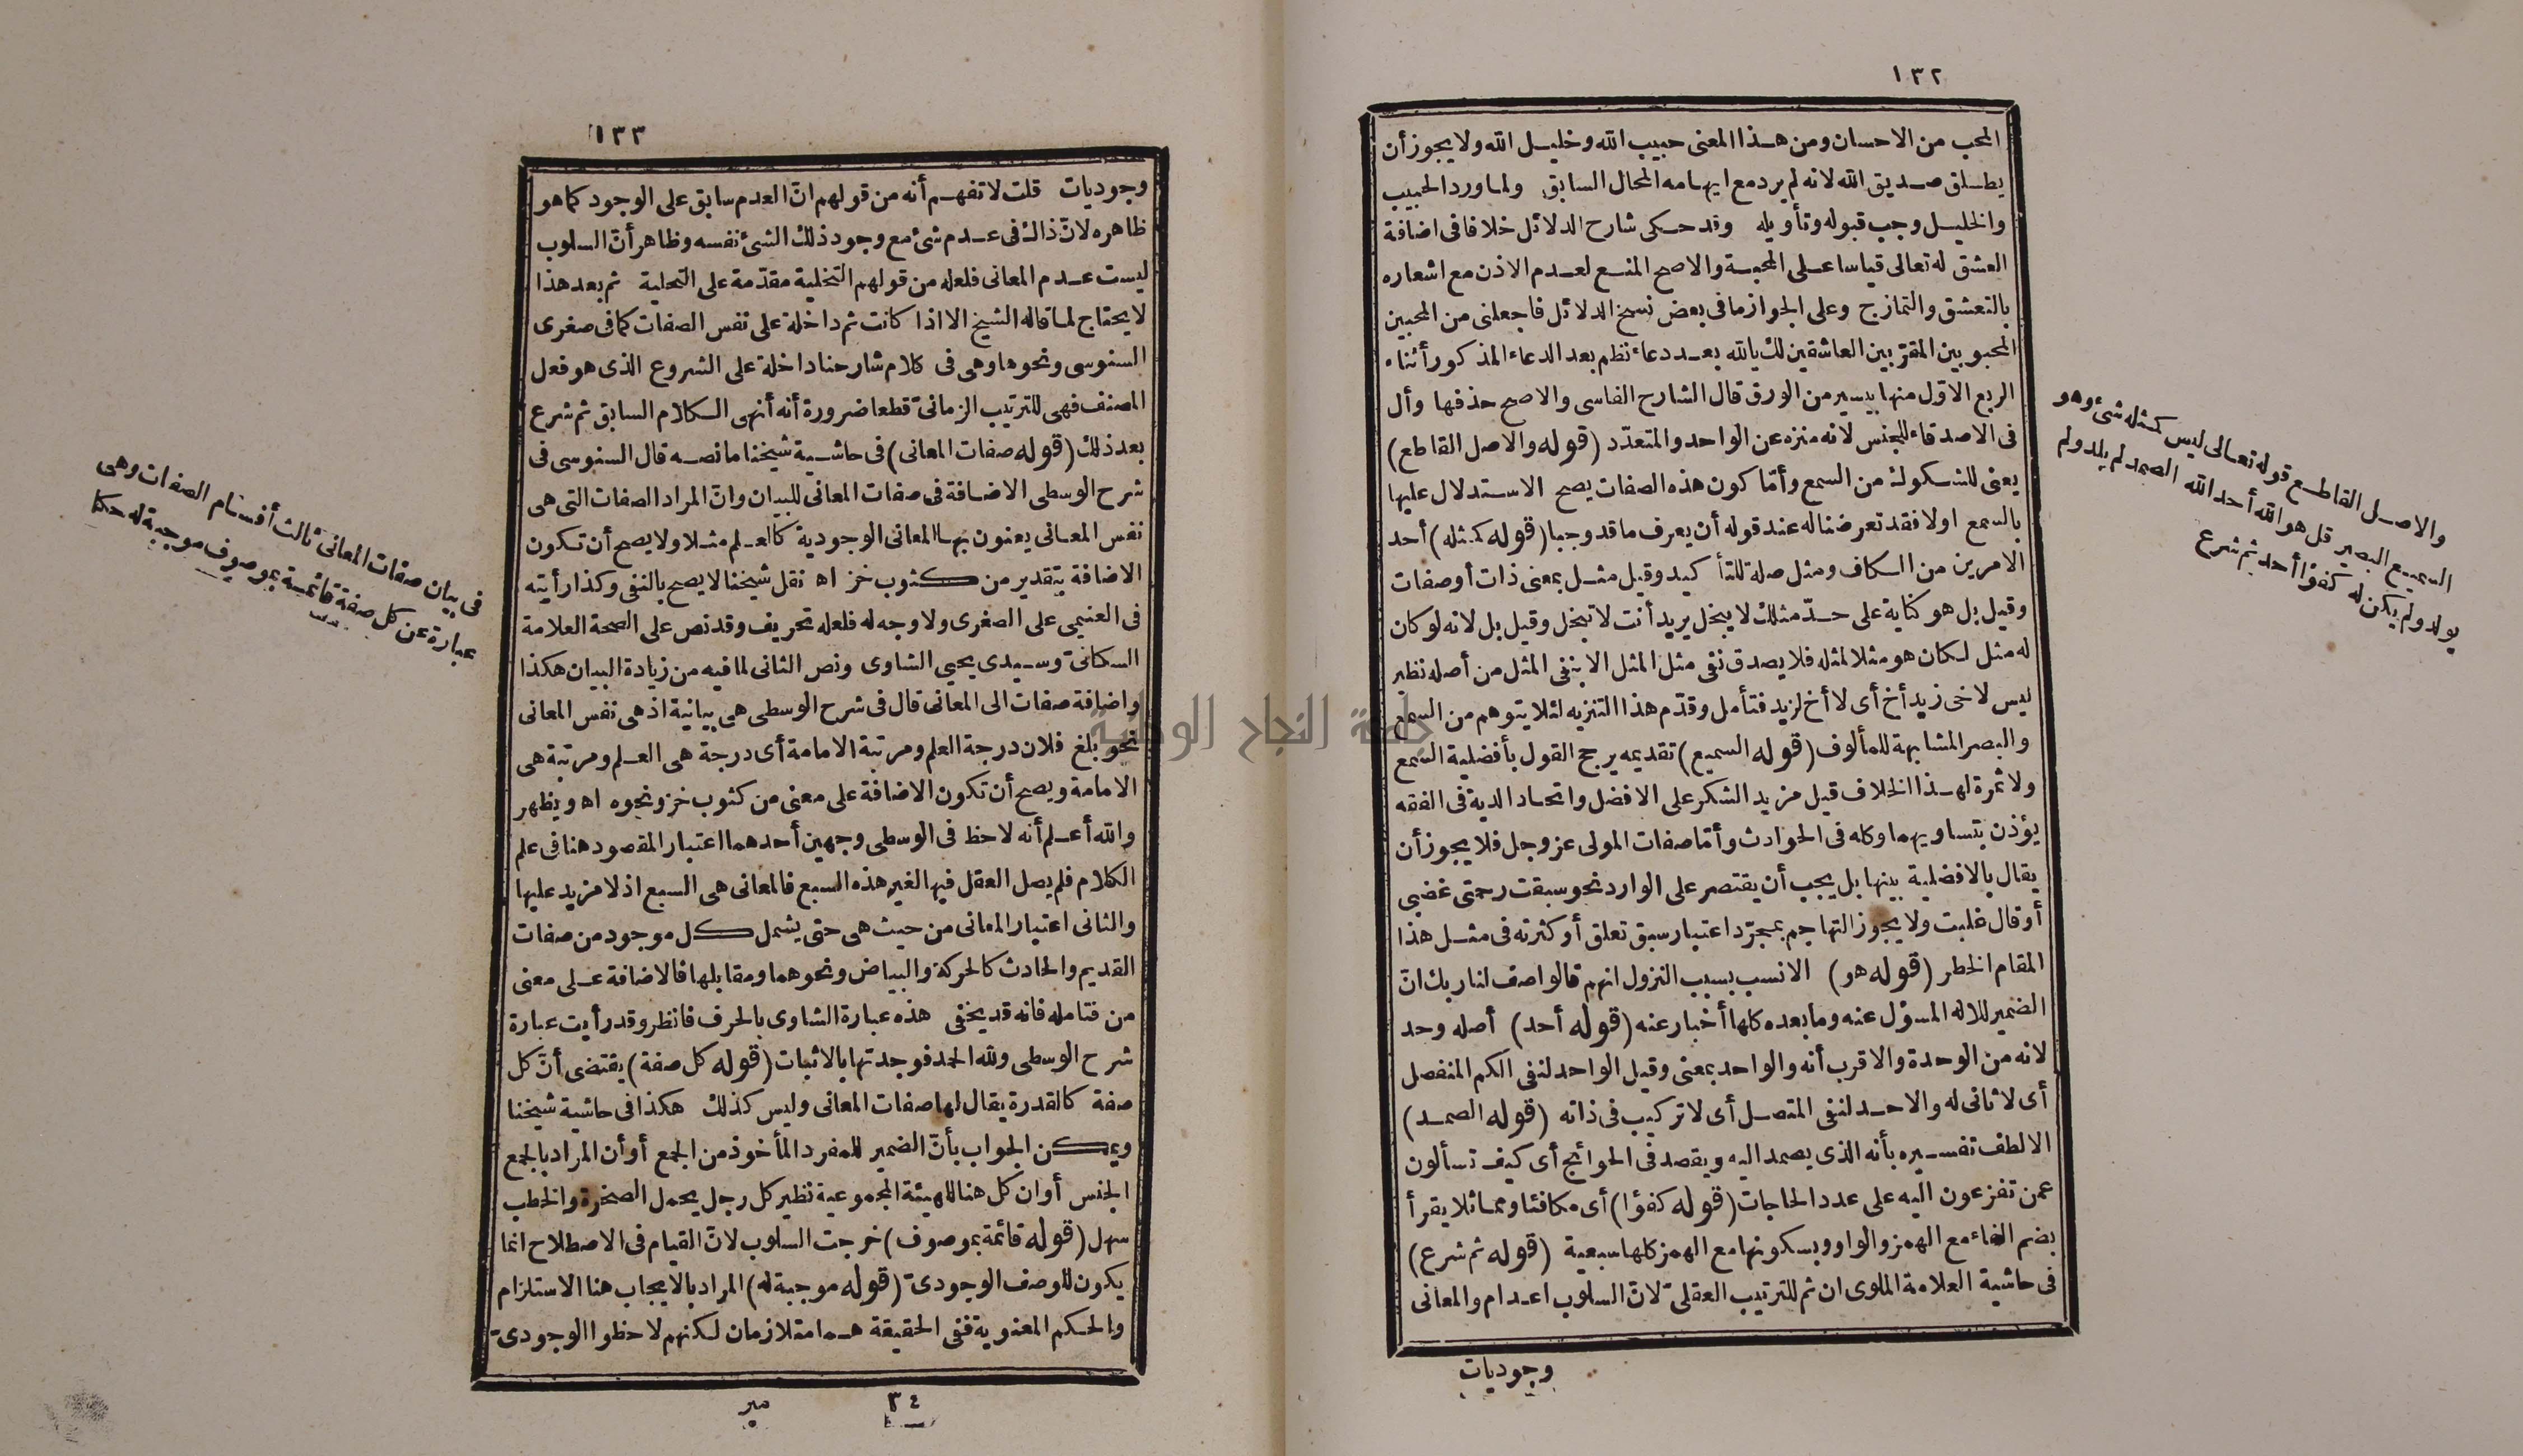 ١٣٢
المحب من الاحسان ومن هذا المعنى حبيب الله وخليل الله ولا يجوز أن
يطلق صديق الله لانه لم يرد مع ايهامه المحال السابق ولما ورد الحبيب
والخليل وجب قبوله وتأويله وقد حكى شارح الدلائل خلافا فى اضافة
العشق له تعالى قياسا على المحبة والاصح المنع لعدم الاذن مع اشعاره
بالتعشق والتمازج وعلى الجواز ما فى بعض نسخ الدلائل فاجعلنى من المحبين
المحبوبين المقرّبين العاشقين لك يا الله بعد دعاء نظم بعد الدعاء المذكور أثناء
الربع الاوّل منها بيسير من الورق قال الشارح الفاسى والاصح حذفها وأل
فى الاصدقاء للجنس لانه منزه عن الواحد والمتعدّد (قوله والاصل القاطع)
يعنى للشكوك من السمع وأمّا كون هذه الصفات يصح الاستدلال عليها
بالسمع اولا فقد تعرضنا له عند قوله أن يعرف ما قد وجبا (قوله كمثله) أحد
الامرين من الكاف ومثل صلة للتأكيد وقيل مثل بمعنى ذات أو صفات
وقيل بل هو كناية على حدّ مثلك لا يبخل يريد أنت لا تبخل وقيل بل لانه لو كان
له مثل لكان هو مثلا لمثله فلا يصدق نفى مثل المثل الا بنفى المثل من أصله نظير
ليس لاخى زيد أخ أى لا أخ لزيد فتأمل وقدّم هذا التنزيه لئلا يتوهم من السمع
والبصر المشابهة للمألوف (قوله السميع) تقديمه يرجح القول بأفضلية السمع
ولا ثمرة لهذا الخلاف قيل مزيد الشكر على الافضل واتحاد الدية فى الفقه
يؤذن بتساويهما وكله فى الحوادث وأمّا صفات المولى عز وجل فلا يجوز أن
يقال بالافضلية بينها بل يجب أن يقتصر على الوارد نحو سبقت رحمتى غضبى
أو قال غلبت ولا يجوز التهاجم بمجرّد اعتبار سبق تعلق أو كثرته فى مثل هذا
المقام الخطر (قوله هو) الانسب بسبب النزول انهم قالوا صف لنا ربك انّ
الضمير للاله المسؤل عنه وما بعده كلها أخبار عنه (قوله أحد) أصله وحد
لانه من الوحدة والاقرب أنه والواحد بمعنى وقيل الواحد لنفى الكم المنفصل
أى لا ثانى له والاحد لنفى المتصل أى لا تركيب فى ذاته (قوله الصمد)
الالطف تفسيره بأنه الذى يصمد اليه ويقصد فى الحوائج أى كيف تسألون
عمن تفزعون اليه على عدد الحاجات (قوله كفؤا) أى مكافئا ومماثلا يقرأ
بضم الفاء مع الهمز والواو وبسكونها مع الهمز كلها سبعية (قوله ثم شرع)
فى حاشية العلامة الملوى ان ثم للترتيب العقلىّ لانّ السلوب اعدام والمعانى
وجوديات
والاصل القاطع قوله تعالى ليس كمثله شئ وهو
السميع البصير قل هو الله أحد الله الصمد لم يلد ولم
يولد ولم يكن له كفؤا أحد ثم شرع
١٣٣
وجوديات قلت لا تفهم أنه من قولهم انّ العدم سابق على الوجود كما هو
ظاهره لانّ ذاك فى عدم شئ مع وجود ذلك الشئ نفسه وظاهر أنّ السلوب
ليست عدم المعانى فلعله من قولهم التخلية مقدّمة على التحلية ثم بعد هذا
لا يحتاج لما قاله الشيخ الا اذا كانت ثم داخلة على نفس الصفات كما فى صغرى
السنوسى ونحوها وهى فى كلام شارحنا داخلة على الشروع الذى هو فعل
المصنف فهى للترتيب الزمانىّ قطعا ضرورة أنه أنهى الكلام السابق ثم شرع
بعد ذلك (قوله صفات المعانى) فى حاشية شيخنا ما نصه قال السنوسى فى
شرح الوسطى الاضافة فى صفات المعانى للبيان وانّ المراد الصفات التى هى
نفس المعانى يعنون بها المعانى الوجودية كالعلم مثلا ولا يصح أن تكون
الاضافة بتقدير من كثوب خز اه نقل شيخنا لا يصح بالنفى وكذا رأيته
فى الغنيمى على الصغرى ولا وجه له فلعله تحريف وقد نص على الصحة العلامة
السكتانىّ وسيدى يحيى الشاوى ونص الثانى لما فيه من زيادة البيان هكذا
واضافة صفات الى المعانى قال فى شرح الوسطى هى بيانية اذ هى نفس المعانى
نحو بلغ فلان درجة العلم ومرتبة الامامة أى درجة هى العلم ومرتبة هى
الامامة ويصح أن تكون الاضافة على معنى من كثوب خز ونحوه اه ويظهر
والله أعلم أنه لاحظ فى الوسطى وجهين أحدهما اعتبار المقصود هنا فى علم
الكلام فلم يصل العقل فيها لغير هذه السبع فالمعانى هى السبع اذ لا مزيد عليها
والثانى اعتبار المعانى من حيث هى حتى يشمل كل موجود من صفات
القديم والحادث كالحركة والبياض ونحوهما ومقابلها فالاضافة على معنى
من فتامله فانه قد يخفى هذه عبارة الشاوى بالحرف فانظر وقد رأيت عبارة
شرح الوسطى ولله الحمد فوجدتها بالاثبات (قوله كل صفة) يقتضى أنّ كل
صفة كالقدرة يقال لها صفات المعانى وليس كذلك هكذا فى حاشية شيخنا
ويمكن الجواب بأنّ الضمير للمفرد المأخوذ من الجمع أو أن المراد بالجمع
الجنس أو ان كل هنا للهيئة المجموعية نظير كل رجل يحمل الصخرة والخطب
سهل (قوله قائمة بموصوف) خرجت السلوب لانّ القيام فى الاصطلاح انما
يكون للوصف الوجودىّ (قوله موجبة له) المراد بالايجاب هنا الاستلزام
والحكم المعنوية ففى الحقيقة هما متلازمان لكنهم لاحظوا الوجودىّ
٣٤ مير
فى بيان صفات المعانى ثالث أقسام الصفات وهى
عبارة عن كل صفة قائمة بموصوف موجبة له حكما
حلمة النجاح الوطنية